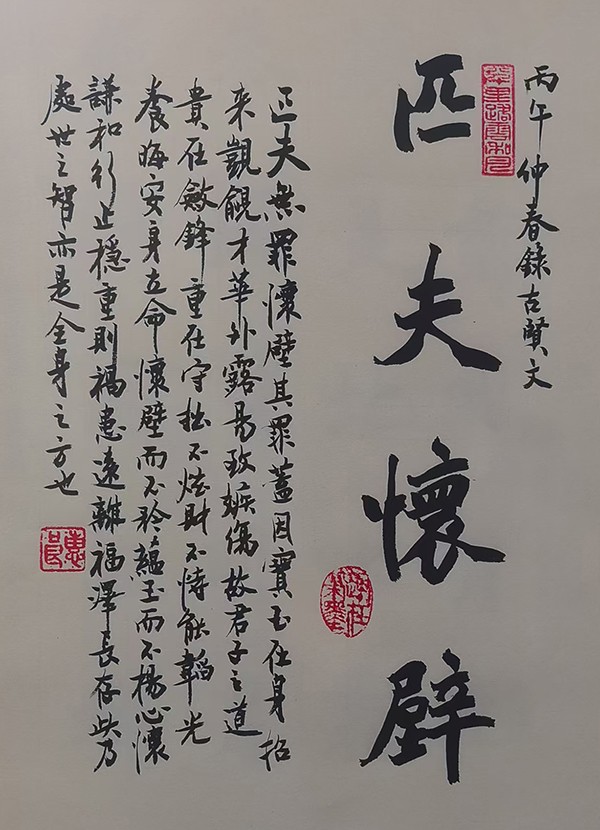 丙午仲春錄古賢文
匹夫懷璧
匹夫無罪懷璧其罪蓋因寶玉在身招
來覬覦才華外露易致嫉傷故君子之道
貴在斂鋒重在守拙不炫財不恃能韜光
養晦安身立命懷璧而不矜蘊玉而不揚心懷
謙和行止穩重則禍患遠離福澤長存此乃
處世之智亦是全身之方也